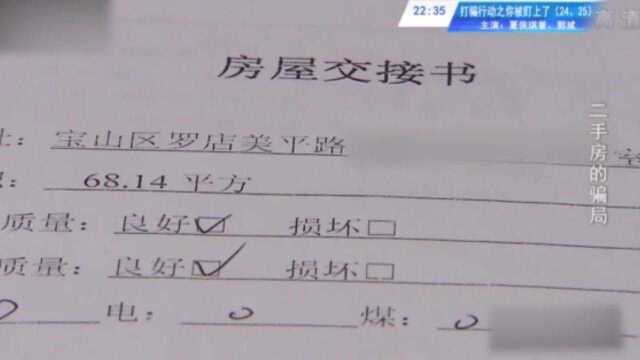 22:35 打骗行动之你被盯上了（24、25）
高清
房屋交接书
址：宝山区罗店美平路 室
68.14 平方
质量：良好☑ 损坏□
质量：良好☑ 损坏□
0 电：0 煤：0
二手房的骗局